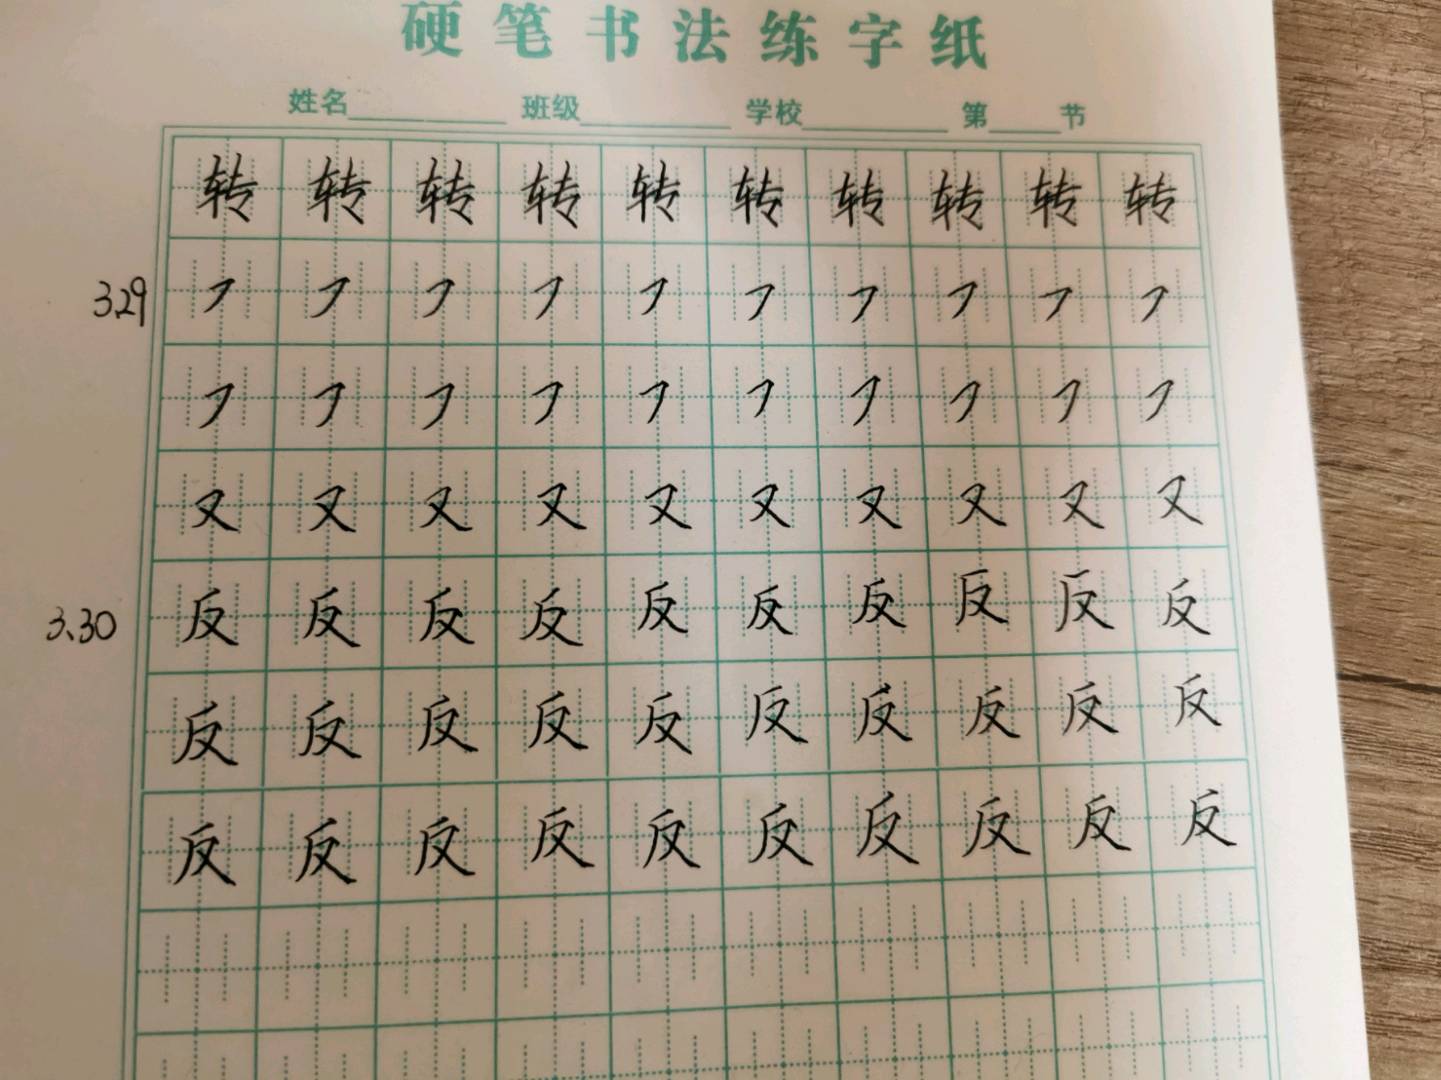 硬笔书法练字纸
姓名 班级 学校 第 节
转 转 转 转 转 转 转 转 转 转
3.29 ㇇ ㇇ ㇇ ㇇ ㇇ ㇇ ㇇ ㇇ ㇇ ㇇
㇇ ㇇ ㇇ ㇇ ㇇ ㇇ ㇇ ㇇ ㇇ ㇇
又 又 又 又 又 又 又 又 又 又
3、30 反 反 反 反 反 反 反 反 反 反
反 反 反 反 反 反 反 反 反 反
反 反 反 反 反 反 反 反 反 反